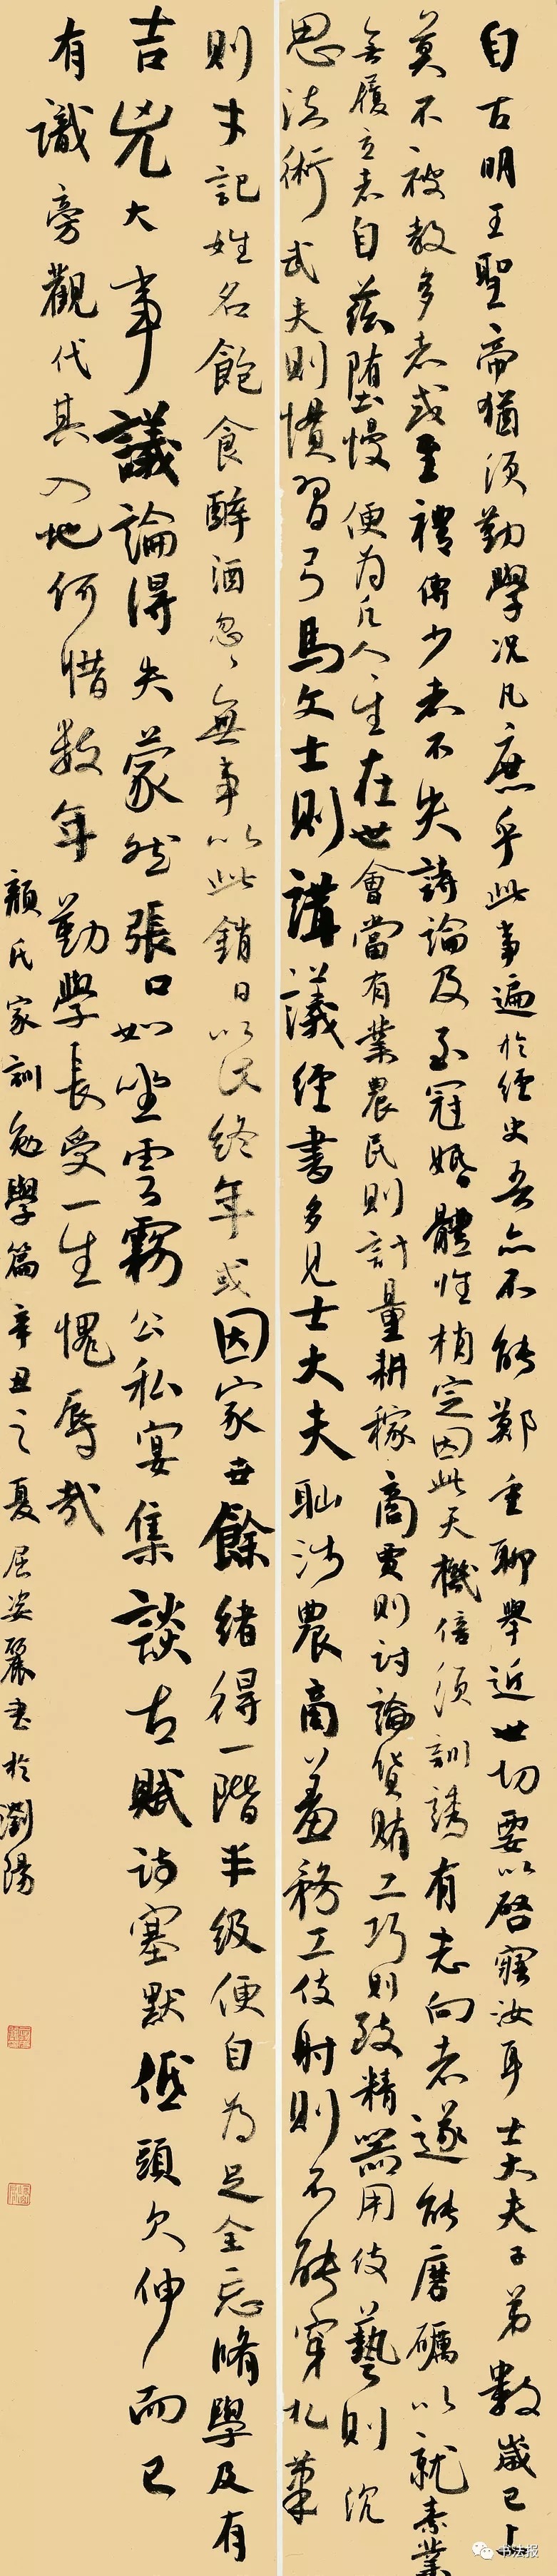 自古明王聖帝猶須勤學況凡庶乎此事遍於經史吾亦不能鄭重聊舉近世切要以啓寤汝耳士大夫子弟數歲已上
莫不被教多者或至禮傳少者不失詩論及至冠婚體性稍定因此天機倍須訓誘有志向者遂能磨礪以就素業
無履立者自茲墮慢便為凡人人生在世會當有業農民則計量耕稼商賈則討論貨賄工巧則致精器用伎藝則沉
思法術武夫則慣習弓馬文士則講議經書多見士大夫恥涉農商羞務工伎射則不能穿札筆
則才記姓名飽食醉酒忽忽無事以此銷日以此終年或因家世餘緒得一階半級便自為足全忘脩學及有
吉凶大事議論得失蒙然張口如坐雲霧公私宴集談古賦詩塞默低頭欠伸而已
有識旁觀代其入地何惜數年勤學長受一生愧辱哉
顏氏家訓勉學篇辛丑之夏屈姿麗書於瀏陽
书法报